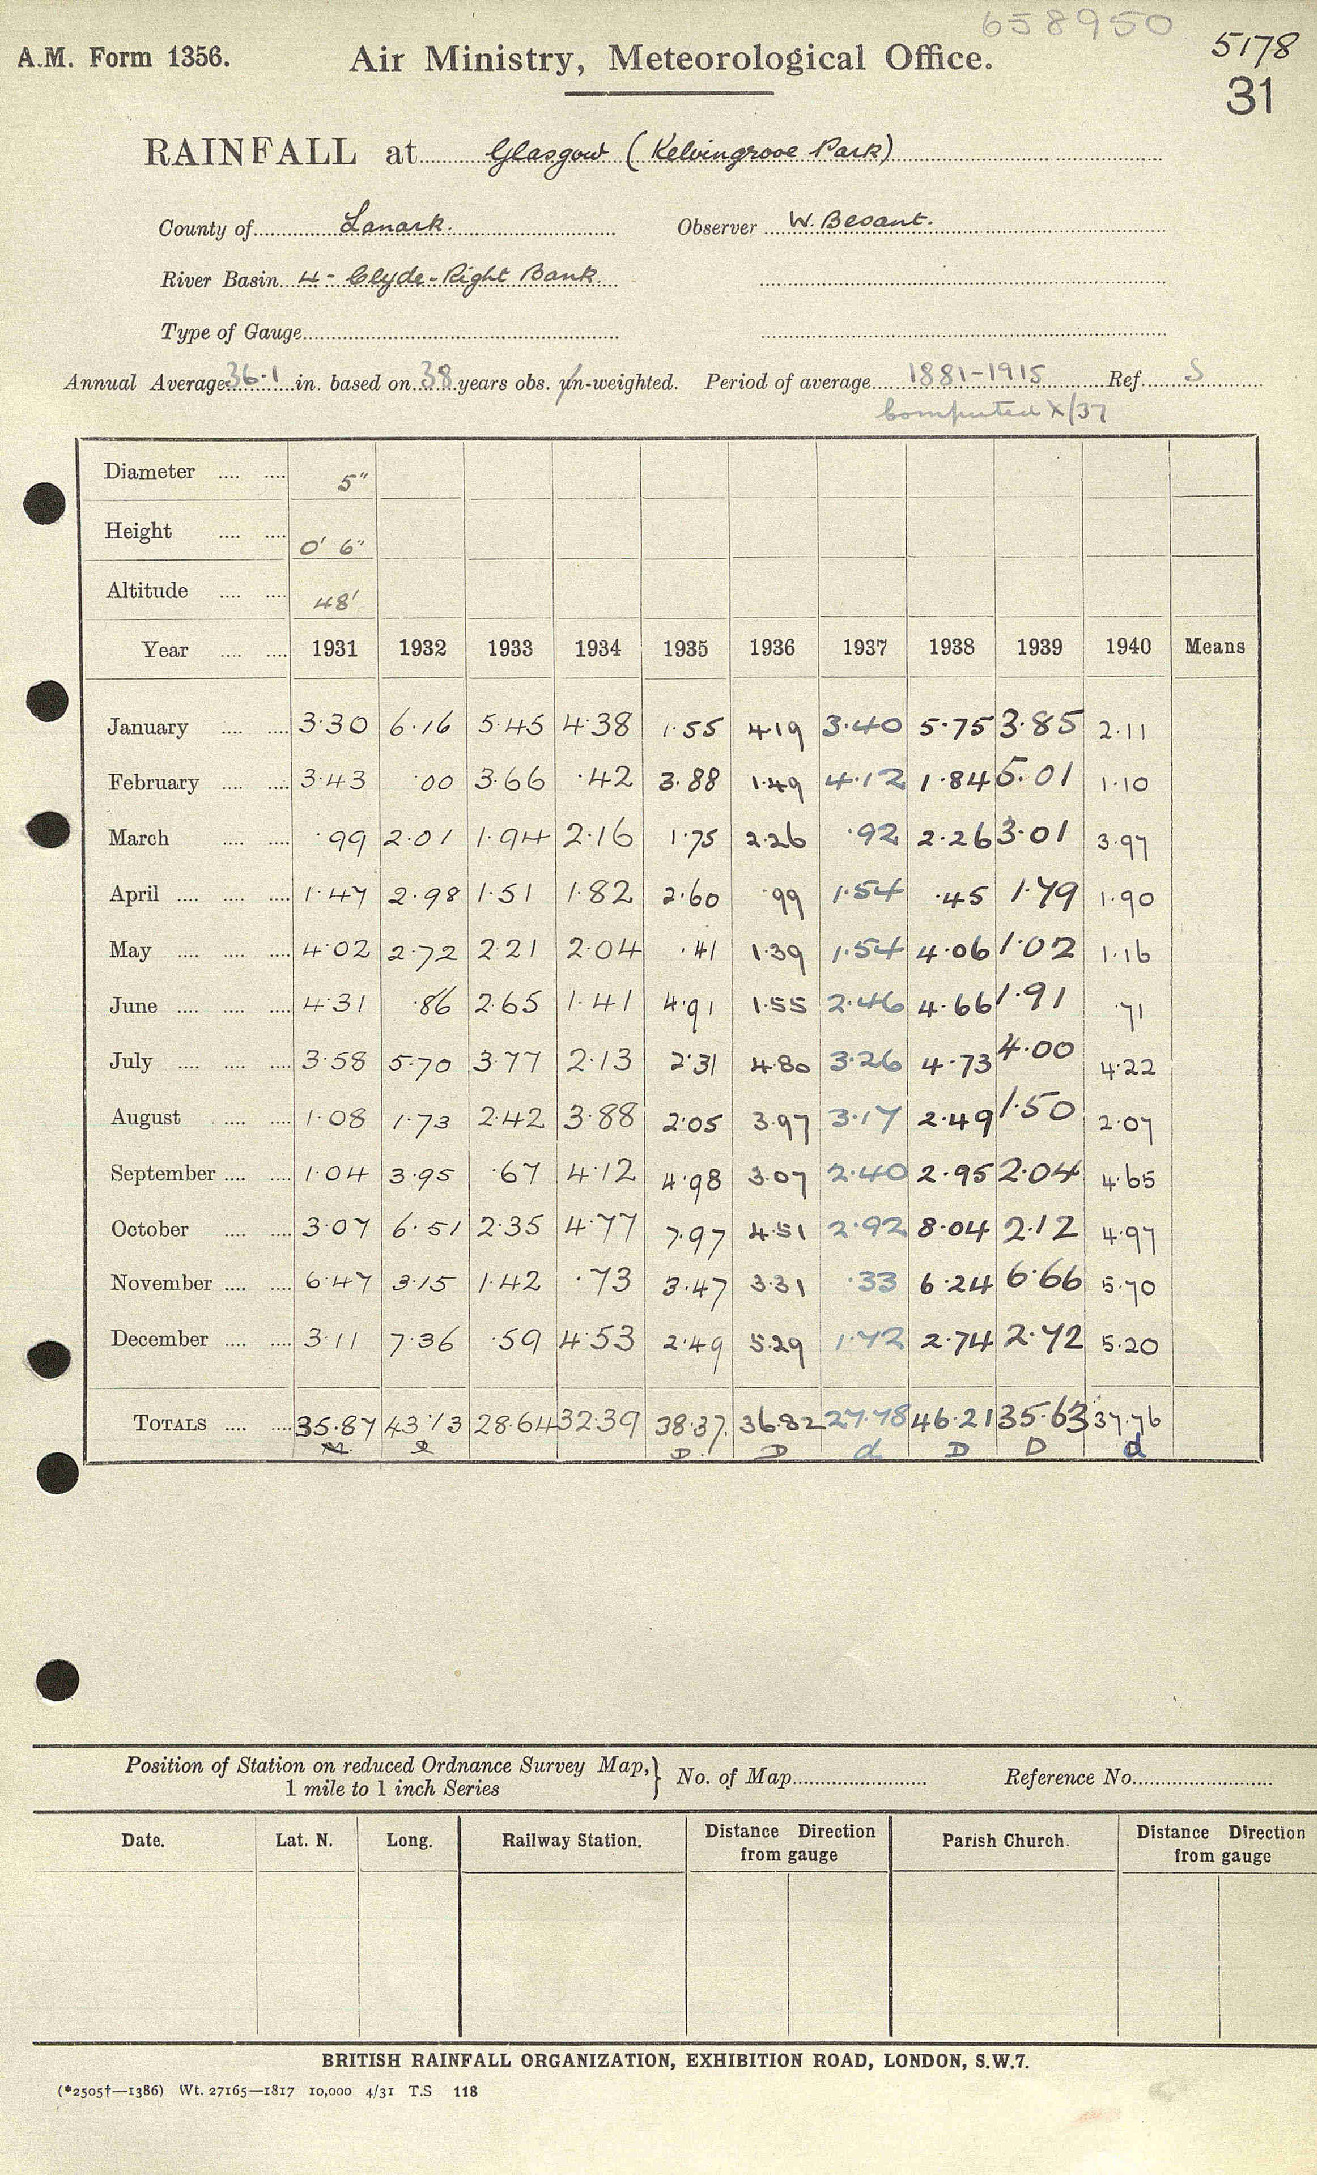 658950
A.M. Form 1356. Air Ministry, Meteorological Office. 5178
31
RAINFALL at Glasgow (Kelvingrove Park)
County of Lanark. Observer W. Besant.
River Basin 4 - Clyde - Right Bank
Type of Gauge
Annual Average 36.1 in. based on 38 years obs. un-weighted. Period of average 1881-1915 Ref. S
Computed X/37
Diameter 5"
Height 0' 6"
Altitude 48'
Year 1931 1932 1933 1934 1935 1936 1937 1938 1939 1940 Means
January 3.30 6.16 5.45 4.38 1.55 4.19 3.40 5.75 3.85 2.11
February 3.43 .00 3.66 .42 3.88 1.49 4.12 1.84 5.01 1.10
March .99 2.01 1.94 2.16 1.75 2.26 .92 2.26 3.01 3.97
April 1.47 2.98 1.51 1.82 2.60 .99 1.54 .45 1.79 1.90
May 4.02 2.72 2.21 2.04 .41 1.39 1.54 4.06 1.02 1.16
June 4.31 .86 2.65 1.41 4.91 1.55 2.46 4.66 1.91 .71
July 3.58 5.70 3.77 2.13 2.31 4.80 3.26 4.73 4.00 4.22
August 1.08 1.73 2.42 3.88 2.05 3.97 3.17 2.49 1.50 2.07
September 1.04 3.95 .67 4.12 4.98 3.07 2.40 2.95 2.04 4.65
October 3.07 6.51 2.35 4.77 7.97 4.51 2.92 8.04 2.12 4.97
November 6.47 3.15 1.42 .73 3.47 3.31 .33 6.24 6.66 5.70
December 3.11 7.36 .59 4.53 2.49 5.29 1.72 2.74 2.72 5.20
TOTALS 35.87 43.13 28.64 32.39 38.37 36.82 27.78 46.21 35.63 37.76
D D d D D d
Position of Station on reduced Ordnance Survey Map,} No. of Map Reference No.
1 mile to 1 inch Series
Date. Lat. N. Long. Railway Station. Distance Direction from gauge Parish Church. Distance Direction from gauge
BRITISH RAINFALL ORGANIZATION, EXHIBITION ROAD, LONDON, S.W.7.
(*2505†—1386) Wt. 27165—1817 10,000 4/31 T.S 118